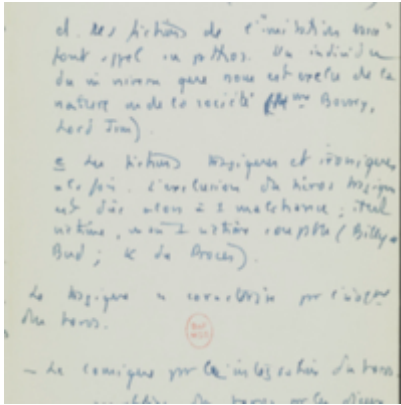 d. Les fictions de l'"imitation basse"
font appel au pathos. Un individu
du m niveau que nous est exclu de la
nature ou de la société (Mme Bovary,
Lord Jim).
e Les fictions tragiques et ironiques
à la fois. L'exclusion du héros tragique
est due alors à 1 malchance ; il est
victime, non 1 victime coupable (Billy
Bud ; K du Procès).
Le tragique se caractérise par l'isolemt
du héros.
– Le comique par l'intégration du héros
du héros